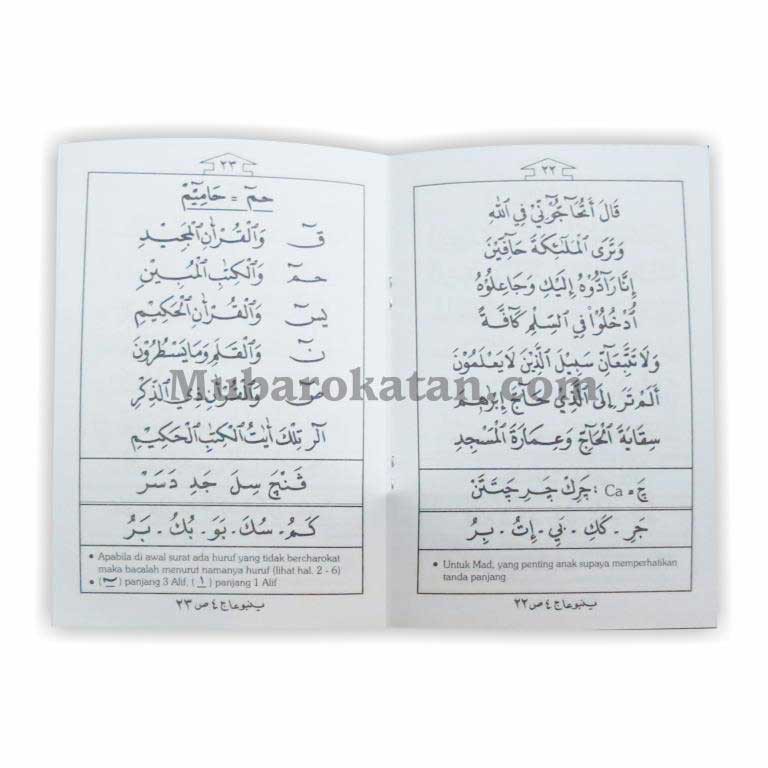 ٢٢
قَالَ أَتُحَاجُّوٓنِّيْ فِي اللّٰهِ
وَتَرَى الْمَلٰٓئِكَةَ حَافِّيْنَ
إِنَّا رَآدُّوْهُ إِلَيْكِ وَجَاعِلُوْهُ
اُدْخُلُوْا فِي السِّلْمِ كَآفَّةً
وَلَا تَتَّبِعَآنِّ سَبِيْلَ الَّذِيْنَ لَا يَعْلَمُوْنَ
أَلَمْ تَرَ إِلَى الَّذِيْ حَآجَّ إِبْرٰهٖمَ
سِقَايَةَ الْحَآجِّ وَعِمَارَةَ الْمَسْجِدِ
چَ = Ca : چَرِكَ چَرِ چَتَتَنْ
جَرِ . كَكِ . بَيِ . إِتُ . بِرُ
• Untuk Mad, yang penting anak supaya memperhatikan tanda panjang
٢٢ ص ٤ ج
٢٣
حٰمٓ = حَامِيْٓمْ
قٓ وَالْقُرْاٰنِ الْمَجِيْدِ
حٰمٓ وَالْكِتٰبِ الْمُبِيْنِ
يٰسٓ وَالْقُرْاٰنِ الْحَكِيْمِ
نٓ وَالْقَلَمِ وَمَا يَسْطُرُوْنَ
صٓ وَالْقُرْاٰنِ ذِي الذِّكْرِ
الٓرٰ تِلْكَ اٰيٰتُ الْكِتٰبِ الْحَكِيْمِ
فَنْچَ سِلَ جَدِ دَسَرْ
كَمُ . سُكَ . بَوَ . بُكُ . بَرُ
• Apabila di awal surat ada huruf yang tidak bercharokat
maka bacalah menurut namanya huruf (lihat hal. 2 - 6)
• ( ٓ ) panjang 3 Alif. ( ٰ ) panjang 1 Alif
٢٣ ص ٤ ج
Mubarokatan.com